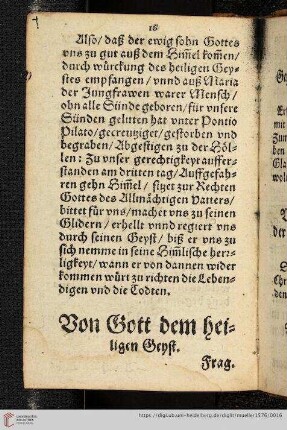 18
Also/ daß der ewig sohn Gottes
vns zu gut auß dem Him̃el kom̃en/
durch würckung des heiligen Gey-
stes empfangen/ vnnd auß Maria
der Jungfrawen warer Mensch/
ohn alle Sünde geboren/ für vnsere
Sünden geluten hat vnter Pontio
Pilato/ gecreutziget/ gestorben vnd
begraben/ Abgestigen zu der Höl-
len: Zu vnser gerechtigkeyt aufferr-
standen am dritten tag/ Auffgefah-
ren gehn Him̃el/ sitzet zur Rechten
Gottes des Allmächtigen Vatters/
bittet für vns/ machet vns zu seinen
Glidern/ erhellt vnnd regiert vns
durch seinen Geyst/ biß er vns zu
sich nemme in seine Him̃lische herr-
ligkeyt/ wann er von dannen wider
kommen würt zu richten die Leben-
digen vnd die Todten.
Von Gott dem hei-
ligen Geyst.
Frag.